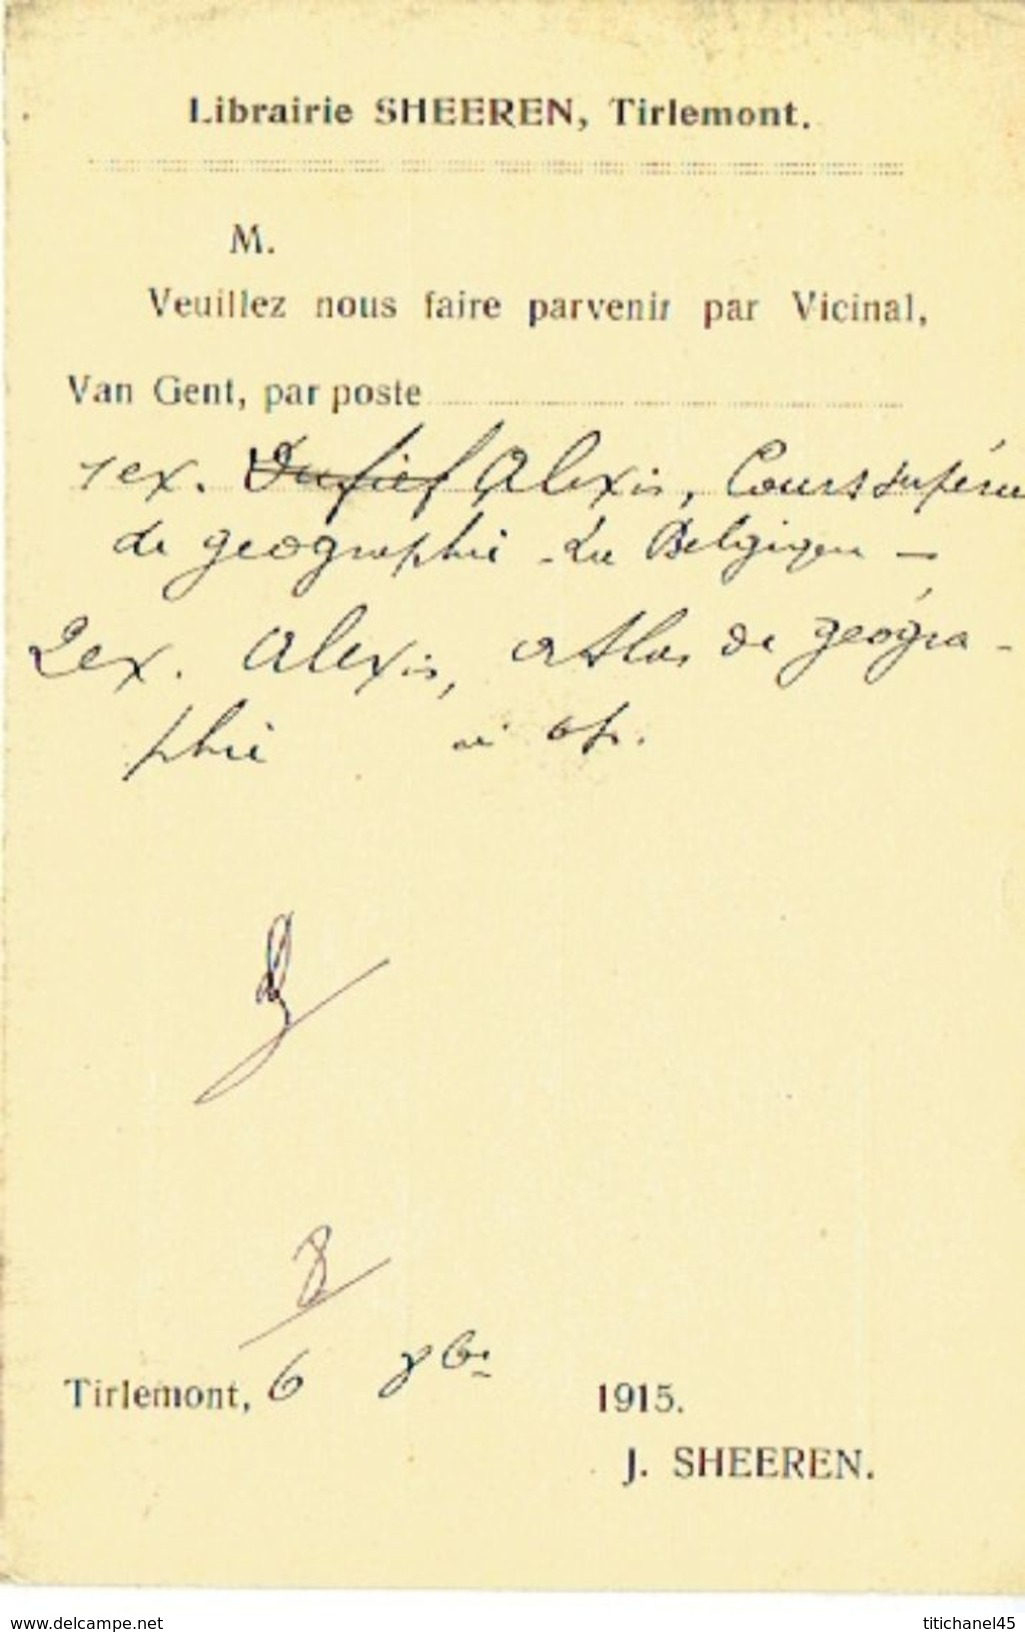 Librairie SHEEREN, Tirlemont.
M.
Veuillez nous faire parvenir par Vicinal,
Van Gent, par poste
1 ex. Dufief Alexis, Cours supérieu
de geographie - La Belgique —
2 ex. Alexis, atlas de géogra-
phie
Tirlemont, 6 8bre 1915.
J. SHEEREN.
www.delcampe.net
titichanel45